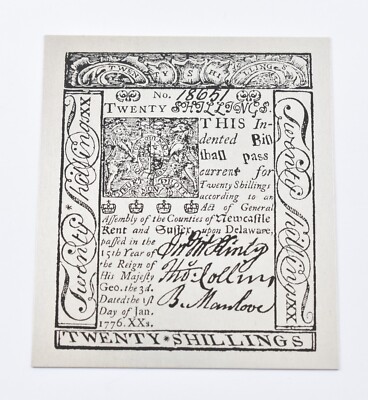 TWENTY SHILLINGS
No. 18651
TWENTY SHILLINGS.
THIS In-
dented Bill
shall pass
current for
Twenty Shillings
according to an
Act of General
Assembly of the Counties of Newcastle
Kent and Sussex upon Delaware,
passed in the
15th Year of
the Reign of
His Majesty
Geo. the 3d.
Dated the 1st
Day of Jan.
1776. XXs.
Jno McKinly
Thos Collins
B. Manlove
Twenty Shillings XX
Twenty Shillings XX
TWENTY SHILLINGS